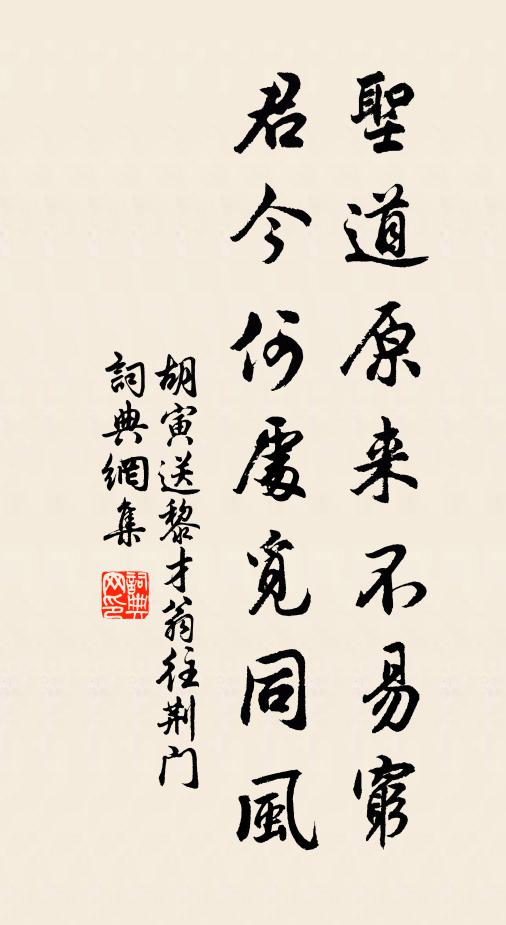 聖道原来不易窮
君今何處覓同風
胡寅送黎才翁往荆门
詞典網集
詞典网印